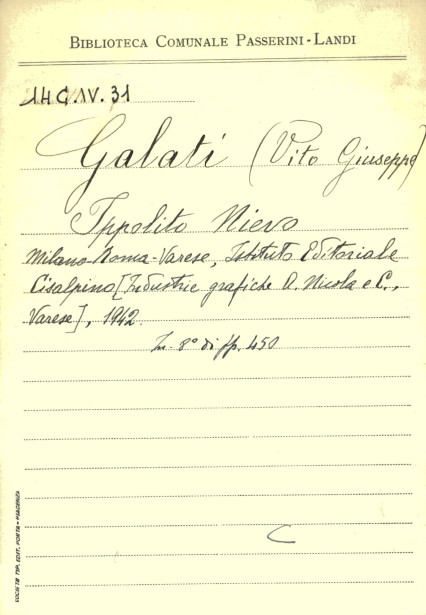 BIBLIOTECA COMUNALE PASSERINI-LANDI
14 G. IV. 31
Galati (Vito Giuseppe)
Ippolito Nievo
Milano-Roma-Varese, Istituto Editoriale
Cisalpino [Industrie grafiche A. Nicola e C.,
Varese], 1942.
In. 8° di pp. 450
SOCIETÀ TIP. EDIT. PORTA - PIACENZA